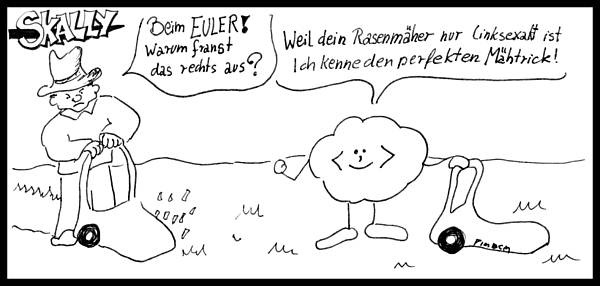 SKALLY
Beim EULER!
Warum franst
das rechts aus?
Weil dein Rasenmäher nur linksexakt ist
Ich kenne den perfekten Mähtrick!